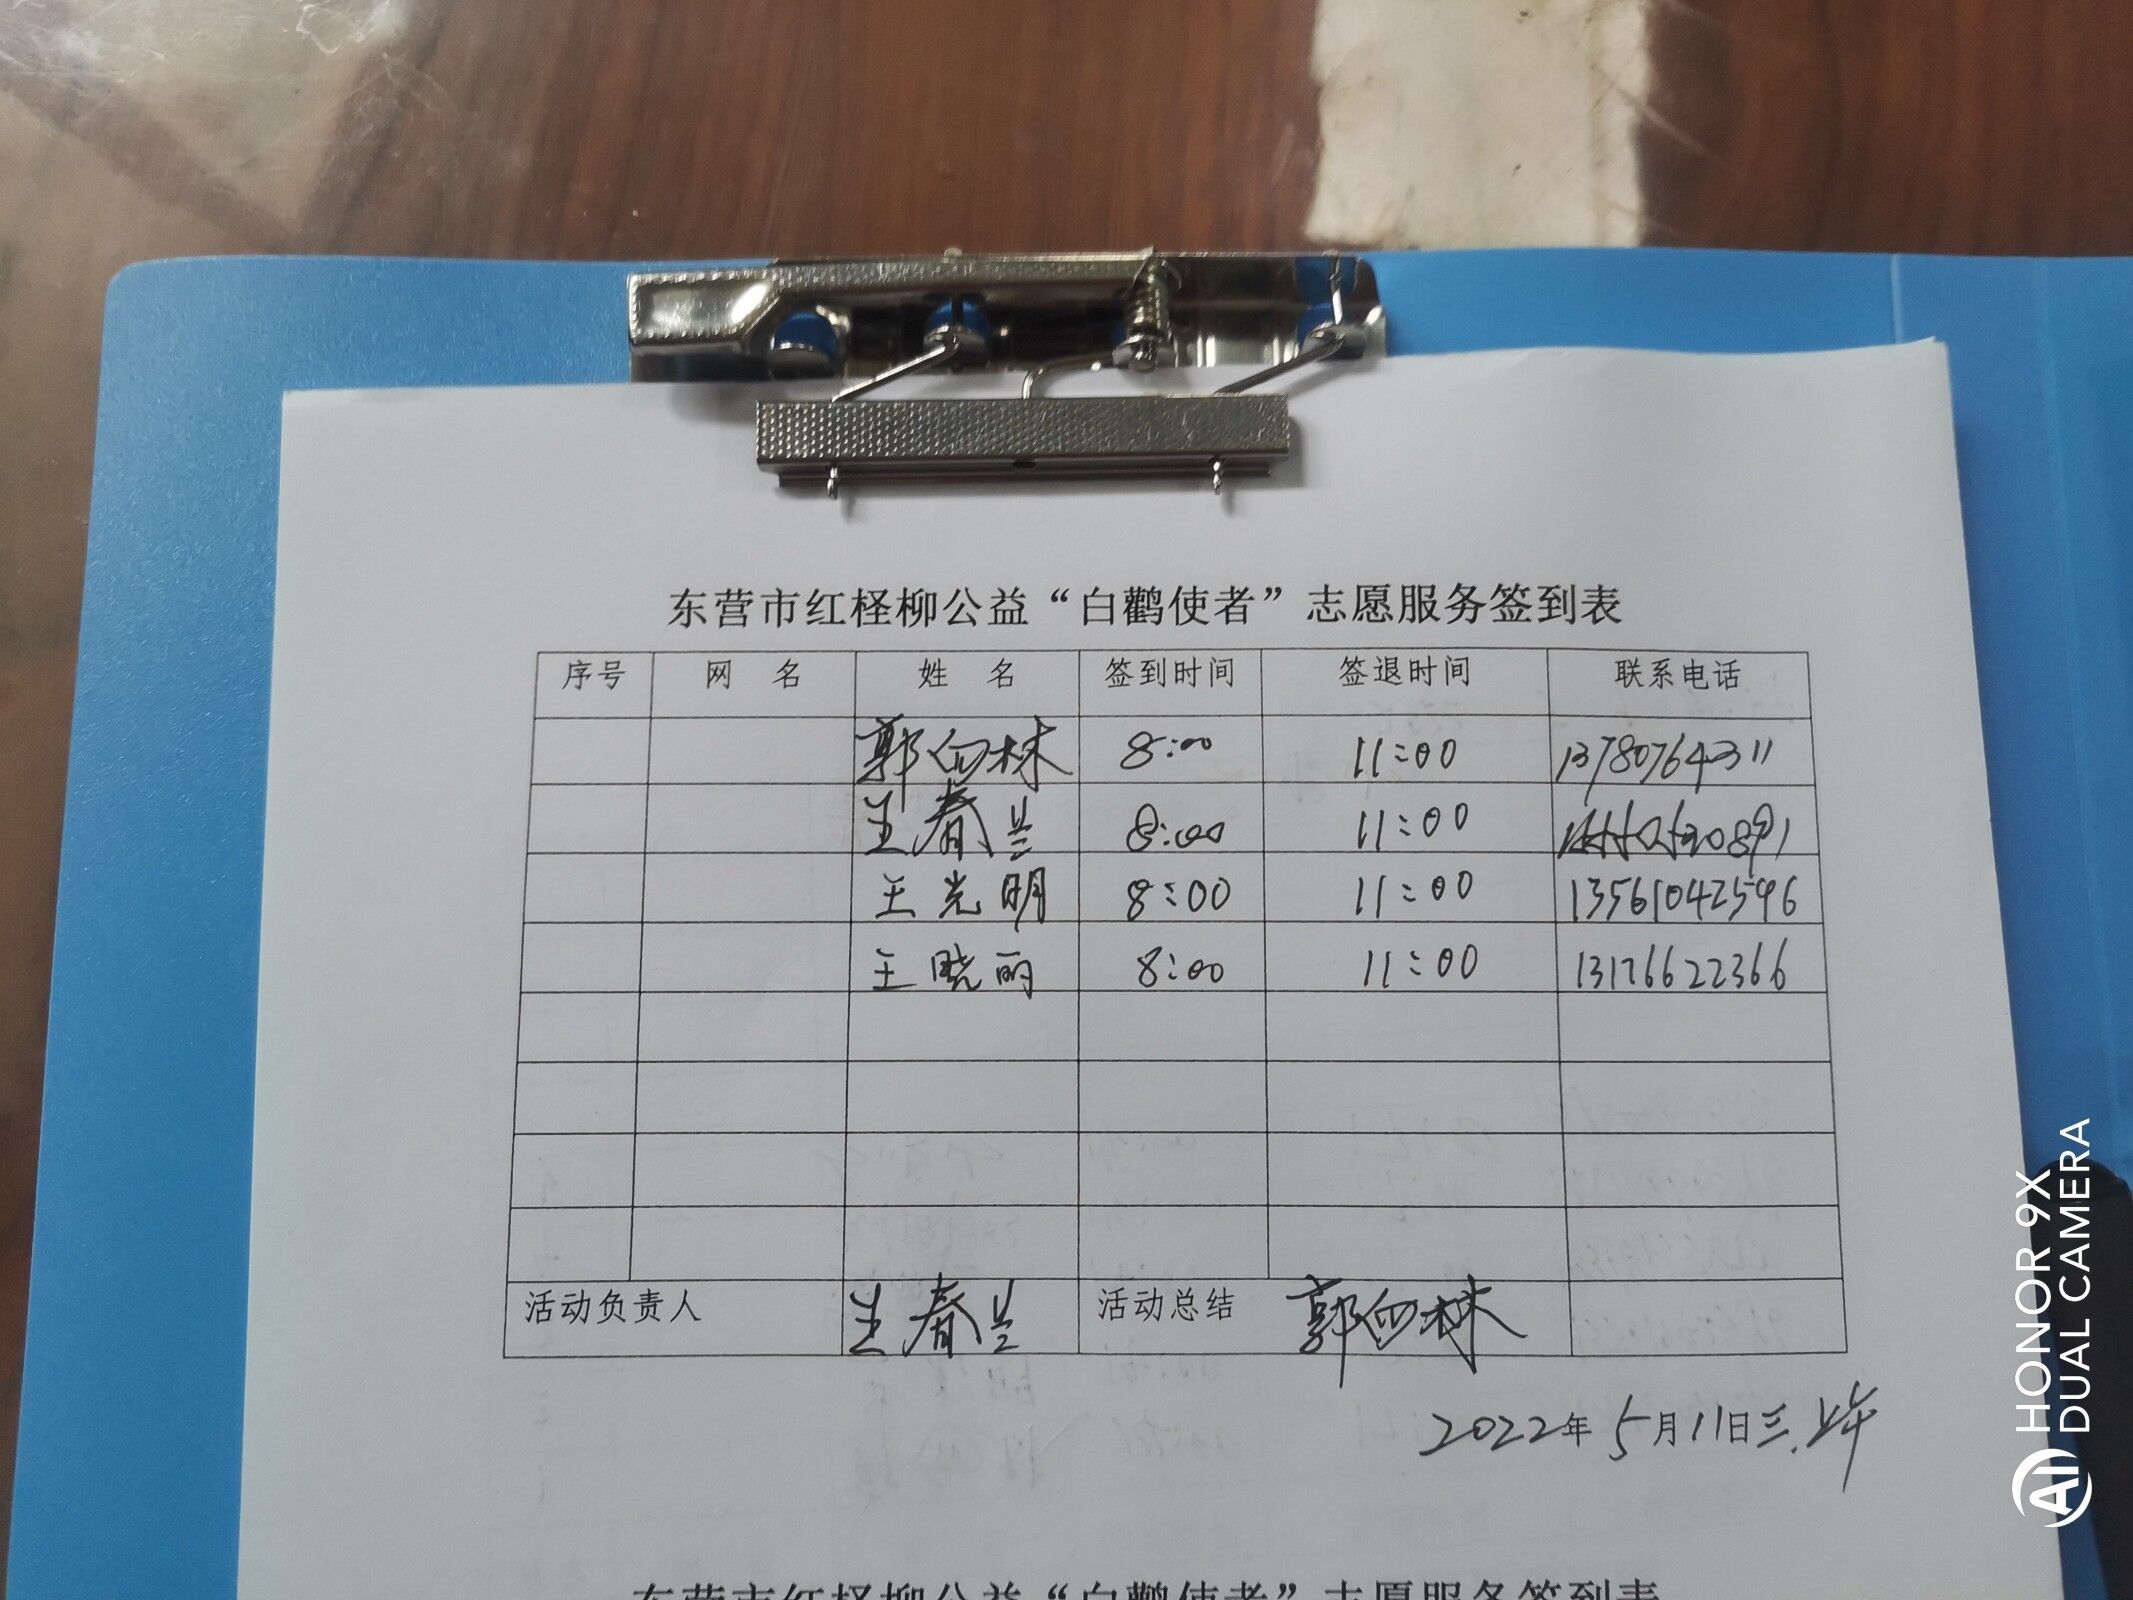 东营市红柽柳公益“白鹳使者”志愿服务签到表
序号 网 名 姓 名 签到时间 签退时间 联系电话
郭向林 8:00 11:00 13780764311
王春兰 8:00 11:00
王光明 8:00 11:00 13561042596
王晓丽 8:00 11:00 13176622366
活动负责人 王春兰 活动总结 郭向林
2022年5月11日三.上午
东营市红柽柳公益“白鹳使者”志愿服务签到表
HONOR 9X
AI DUAL CAMERA